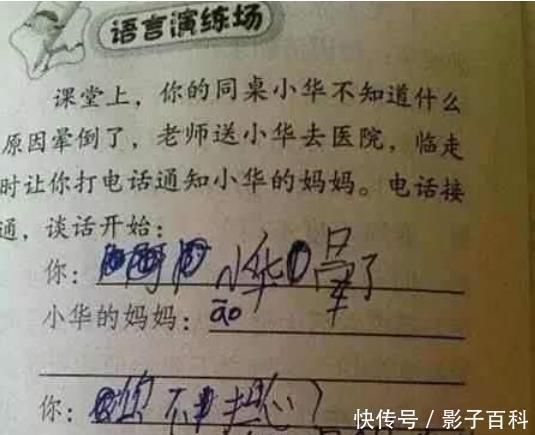 语言演练场
课堂上，你的同桌小华不知道什么
原因晕倒了，老师送小华去医院，临走
时让你打电话通知小华的妈妈。电话接
通，谈话开始：
你：小华晕了
小华的妈妈：āo
你：你不担心
快传号／影子百科